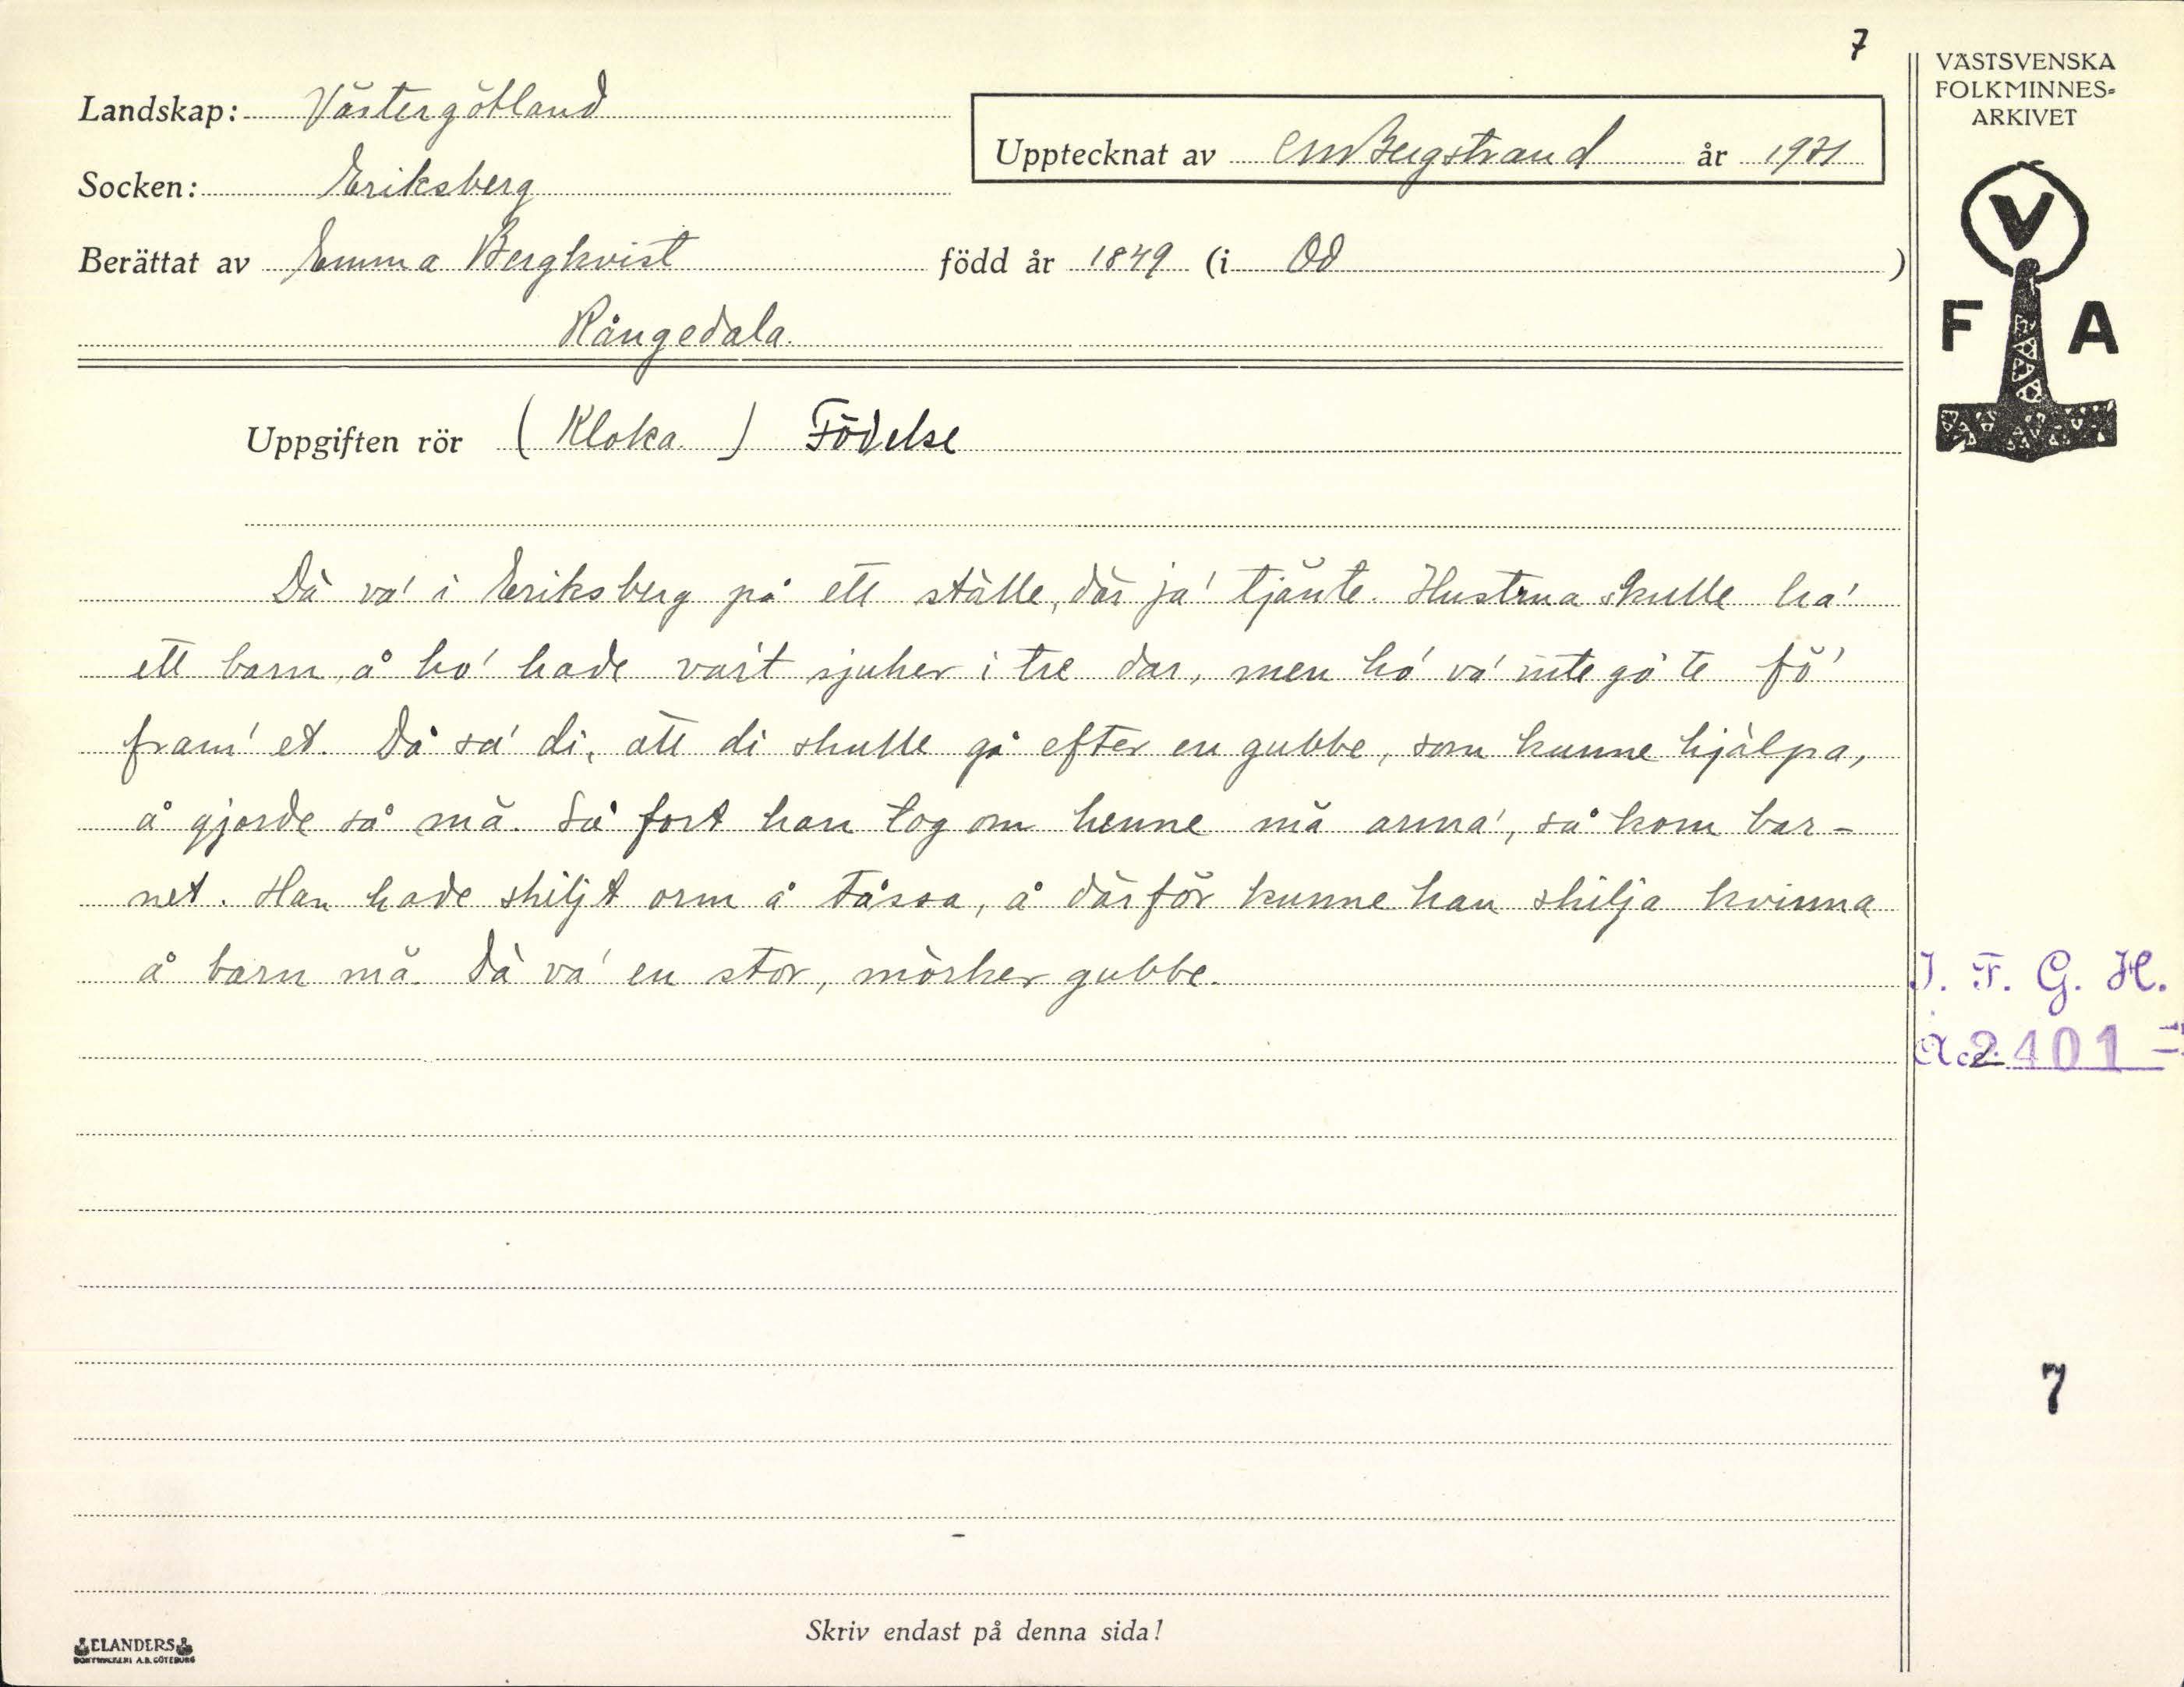 7
VÄSTSVENSKA
FOLKMINNES-
ARKIVET
Landskap: Västergötland
Upptecknat av CM Bergstrand år 1931
Socken: Eriksberg
Berättat av Emma Bergkvist född år 1849 (i Od )
Rångedala.
V
F A
Uppgiften rör (Kloka.) Födelse
Dä va' i Eriksberg på ett ställe, där ja' tjänte. Hustrua skulle ha'
ett barn, å ho' hade vart sjuker i tre dar, men ho' va' inte go' te få'
fram' et. Då sa' di, att di skulle gå efter en gubbe, som kunne hjälpa,
å gjorde så mä. Så fort han tog om henne mä arma', så kom bar-
net. Han hade skiljt orm å tåssa, å därför kunne han skilja kvinna
å barn mä. Dä va' en stor, mörker gubbe.
I. F. G. H.
Acc. 2401
7
Skriv endast på denna sida!
ELANDERS
BOKTRYCKERI A.B. GÖTEBORG